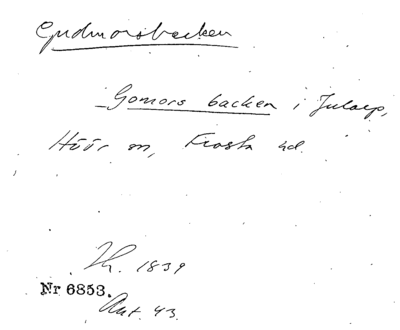 Gudmorsbacken
Gomors backen i Jularp,
Höör sn, Frosta hd.
Th. 1839
Nr 6853.
Ant. 43.